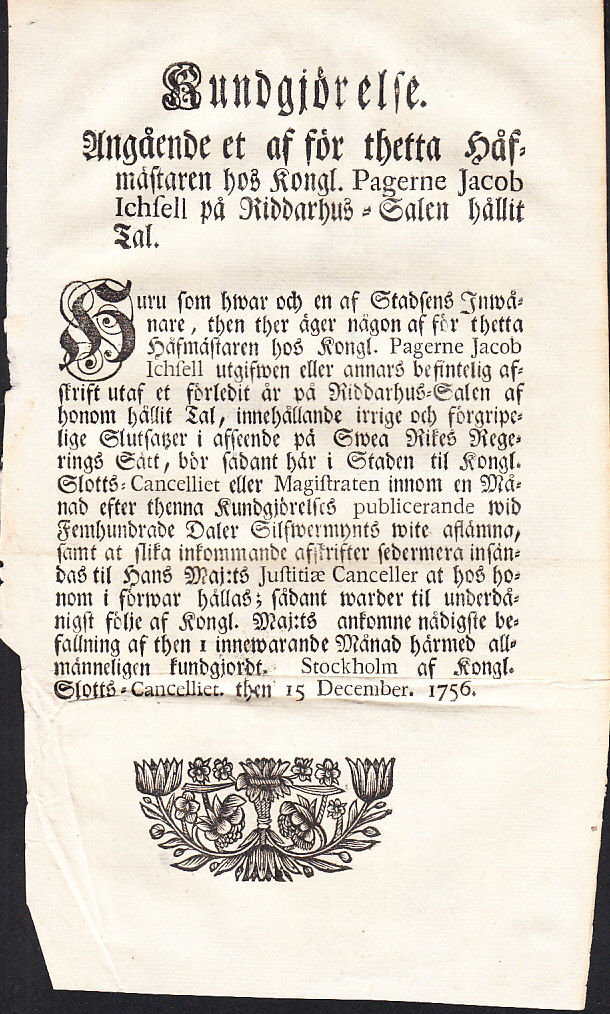 Kundgjörelse.
Angående et af för thetta Håf-
mästaren hos Kongl. Pagerne Jacob
Ichsell på Riddarhus-Salen hållit
Tal.
Huru som hwar och en af Stadsens Inwå-
nare, then ther äger någon af för thetta
Håfmästaren hos Kongl. Pagerne Jacob
Ichsell utgifwen eller annars befintelig af-
skrift utaf et förledit år på Riddarhus-Salen af
honom hållit Tal, innehållande irrige och förgripe-
lige Slutsatzer i afseende på Swea Rikes Rege-
rings Sätt, bör sådant här i Staden til Kongl.
Slotts-Cancelliet eller Magistraten innom en Må-
nad efter thenna Kundgjörelses publicerande wid
Femhundrade Daler Silfwermynts wite aflämna,
samt at slika inkommande afskrifter sedermera insän-
das til Hans Maj:ts Justitiæ Canceller at hos ho-
nom i förwar hållas; sådant warder til underdå-
nigst följe af Kongl. Maj:ts ankomne nådigste be-
fallning af then 1 innewarande Månad härmed all-
männeligen kundgjordt. Stockholm af Kongl.
Slotts-Cancelliet. then 15 December. 1756.